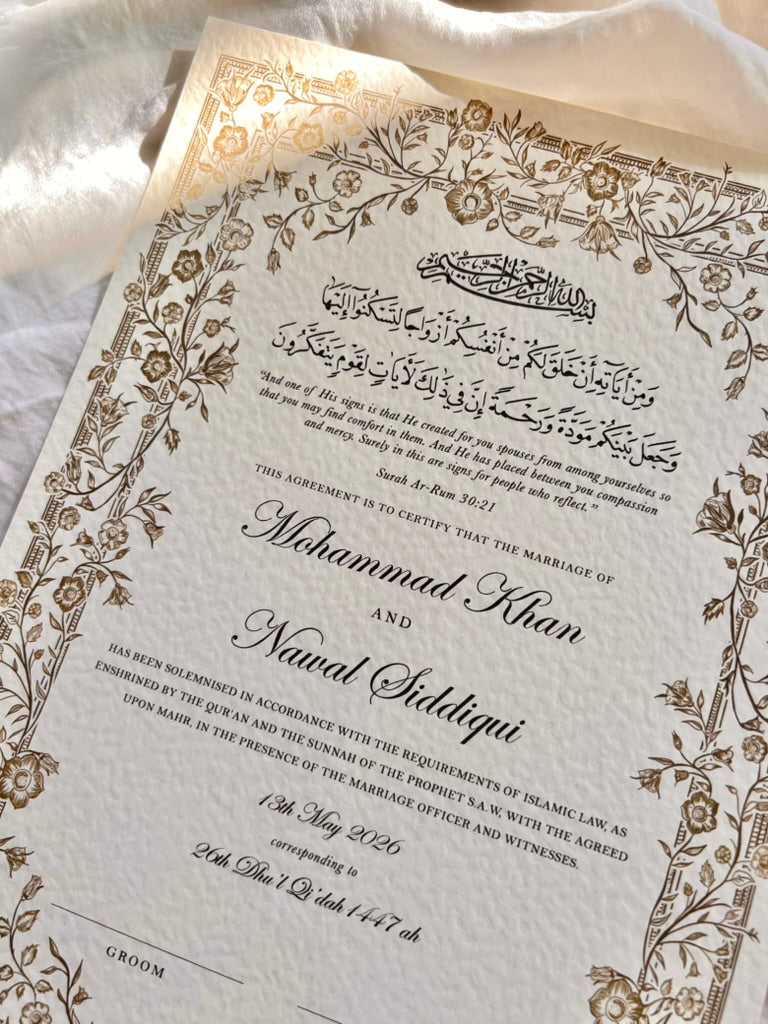 بسم الله الرحمن الرحيم
وَمِنْ أَيَاتِهِ أَنْ خَلَقَ لَكُمْ مِنْ أَنْفُسِكُمْ أَزْوَاجًا لِتَسْكُنُوا إِلَيْهَا
وَجَعَلَ بَيْنَكُمْ مَوَدَّةً وَرَحْمَةً إِنَّ فِي ذَلِكَ لَأَيَاتٍ لِقَوْمٍ يَتَفَكَّرُونَ
“And one of His signs is that He created for you spouses from among yourselves so
that you may find comfort in them. And He has placed between you compassion
and mercy. Surely in this are signs for people who reflect.”
Surah Ar-Rum 30:21
THIS AGREEMENT IS TO CERTIFY THAT THE MARRIAGE OF
Mohammad Khan
AND
Nawal Siddiqui
HAS BEEN SOLEMNISED IN ACCORDANCE WITH THE REQUIREMENTS OF ISLAMIC LAW, AS
ENSHRINED BY THE QUR'AN AND THE SUNNAH OF THE PROPHET S.A.W, WITH THE AGREED
UPON MAHR, IN THE PRESENCE OF THE MARRIAGE OFFICER AND WITNESSES.
13th May 2026
corresponding to
26th Dhu'l Qi'dah 1447 ah
GROOM